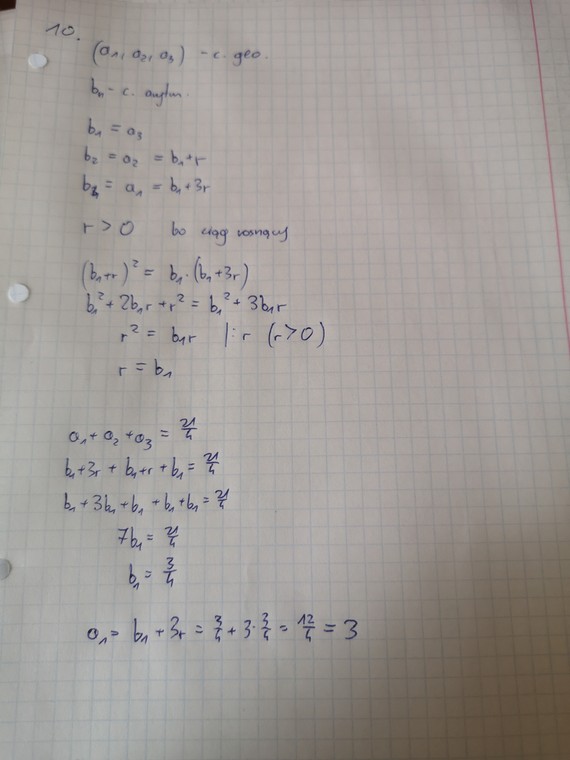 10.
(a₁, a₂, a₃) - c. geo.
bₙ - c. arytm.
b₁ = a₃
b₂ = a₂ = b₁+r
b₄ = a₁ = b₁+3r
r > 0 bo ciąg rosnący
(b₁+r)² = b₁·(b₁+3r)
b₁² + 2b₁r + r² = b₁² + 3b₁r
r² = b₁r |:r (r>0)
r = b₁
a₁ + a₂ + a₃ = 21/4
b₁+3r + b₁+r + b₁ = 21/4
b₁ + 3b₁ + b₁ + b₁ + b₁ = 21/4
7b₁ = 21/4
b₁ = 3/4
a₁ = b₁ + 3r = 3/4 + 3·3/4 = 12/4 = 3